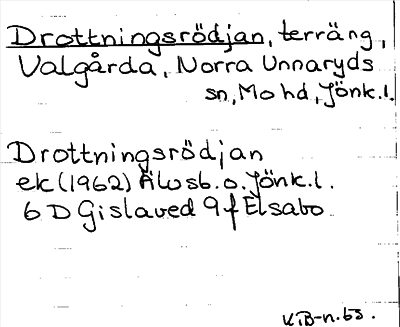 Drottningsrödjan, terräng,
Valgårda, Norra Unnaryds
sn, Mo hd, Jönk.l.
Drottningsrödjan
ek (1962) Älvsb. o. Jönk.l.
6 D Gislaved 9 f Elsabo